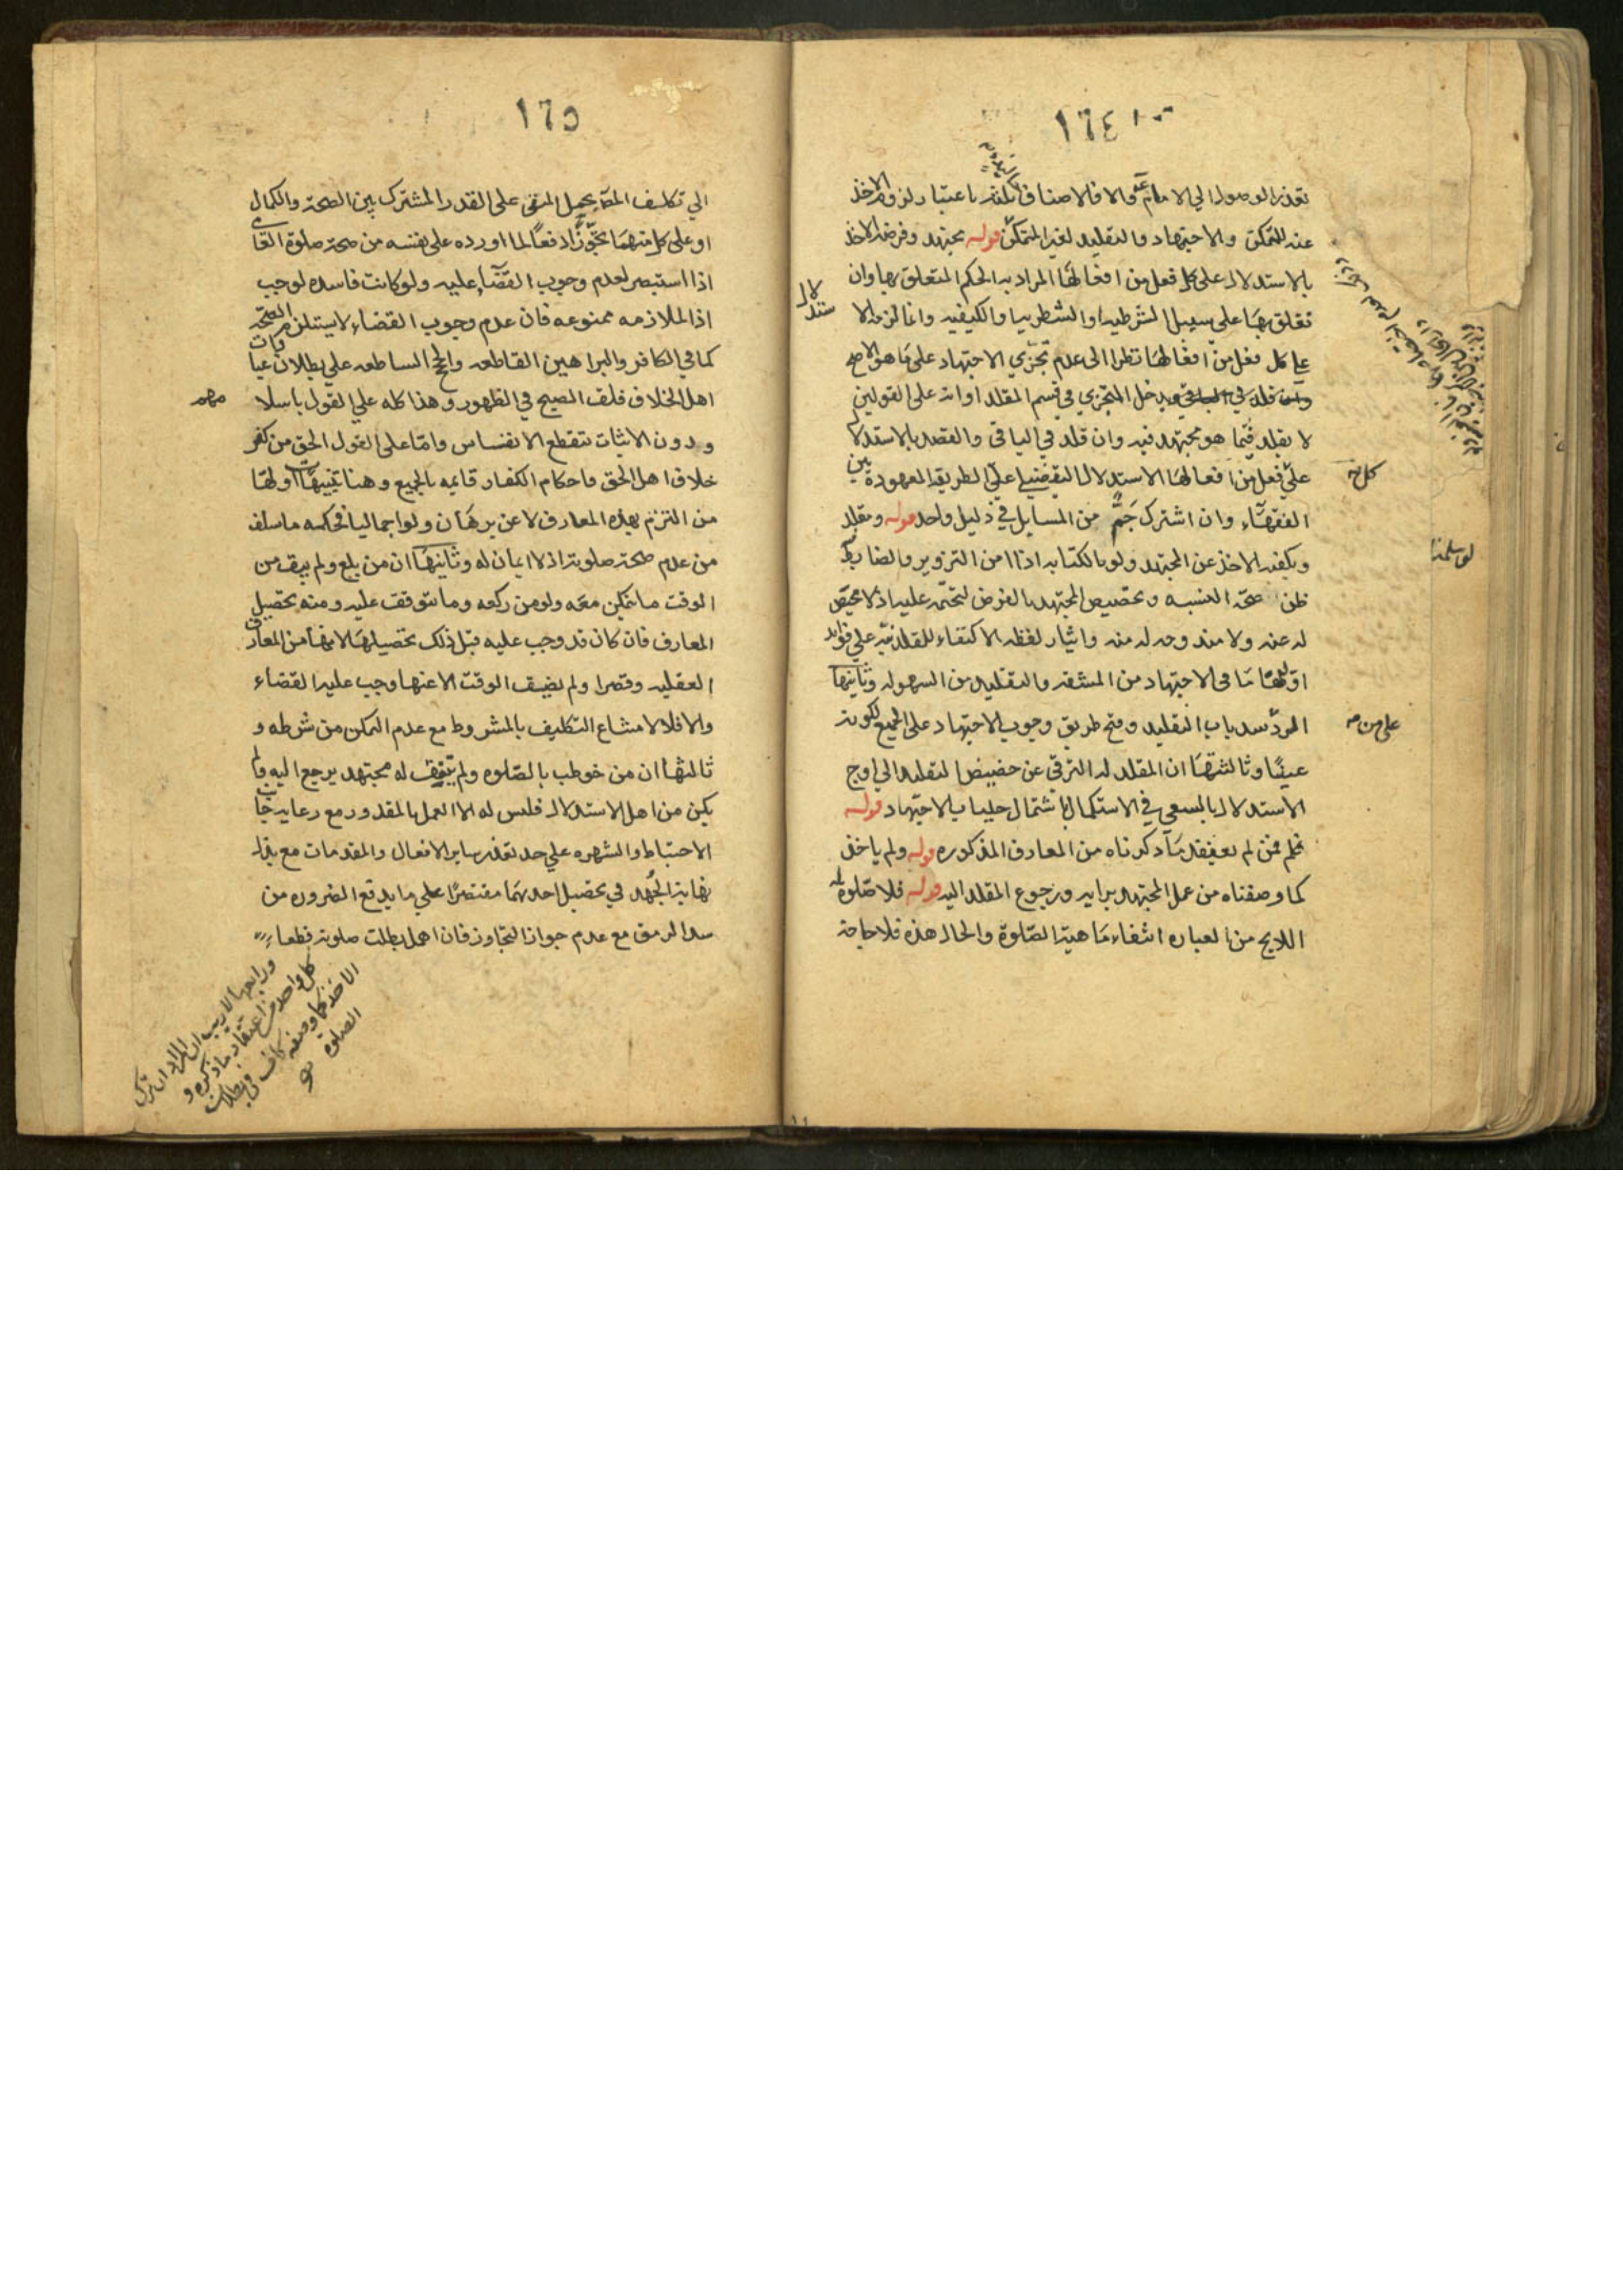 ١٦٤
تعذر الوصول الي الامام والا فالاصناف ثلثة باعتبار لزوم الاخذ
عنه للمتمكن والاجتهاد والتقليد لغير المتمكن قوله مجتهد وفرضه الاخذ
بالاستدلال على كل فعل من افعالها المراد به الحكم المتعلق بها وان
تعلق بها على سبيل الشرطيه او الشطريه او الكيفيه وانما لزم الا
ستدلال
على كل فعل من افعالها نظرا الى عدم تجزي الاجتهاد على ما هو الاصح
يدخل المتجزي في قسم المقلد او انه على القولين
لا يقلد فيما هو مجتهد فيه وان قلد في الباقي والقصد بالاستدلال
على فعل من افعالها الاستدلال التفصيلي على الطريقة المعهودة بين
كل
الفقهاء وان اشترك جم من المسايل في دليل واحد قوله ومقلد
ويكفيه الاخذ عن المجتهد ولو بالكتابه اذا امن التزوير والضابط
ظن صحة النسبه وتخصيص المجتهد بالفرض لتحتمه عليه اذ لا محيص
له عنه ولا مندوحه له منه وايثار لفظه الاكتفاء للمقلد نبه على فوايد
اولها ما في الاجتهاد من المشقه والتقليد من السهوله وثانيها
الرد سد باب التقليد وفتح طريق وجوب الاجتهاد على الجميع لكونه
على من
عينيا وثالثها ان المقلد له الترقي عن حضيض التقليد الى اوج
الاستدلال بالسعي في الاستكمال باشتمال جلباب الاجتهاد قوله
فمن لم يعتقد ما ذكرناه من المعارف المذكوره قوله ولم ياخذ
كما وصفناه من عمل المجتهد برايه ورجوع المقلد اليه قوله فلا صلوة له
اللايح من العباره انتفاء ماهية الصلوة والحال هذه فلا حاجة
١٦٥
الي تكلف المص بحمل النفي على القدر المشترك بين الصحة والكمال
او على كل منهما تجوزا دفعا لما اورده على نفسه من صحة صلوة القاي
اذا استبصر لعدم وجوب القضاء عليه ولو كانت فاسده لوجب
اذ الملازمه ممنوعه فان عدم وجوب القضاء لا يستلزم الصحة
كما في الكافر والبراهين القاطعه والحجج الساطعه علي بطلان عبادات
اهل الخلاف فلق الصبح في الظهور وهذا كله علي القول باسلا
مهم
ودون الاثبات تنقطع الانفاس واما على القول الحق من كفر
خلاف اهل الحق فاحكام الكفار قايمه بالجميع وهنا تنبيهات اولها
من التزم بهذه المعارف لا عن برهان ولو اجماليا فحكمه ما سلف
من عدم صحة صلوته اذ لا ايمان له وثانيها ان من بلغ ولم يبق من
الوقت ما يتمكن معه ولو من ركعه وما يتوقف عليه ومنه تحصيل
المعارف فان كان قد وجب عليه قبل ذلك تحصيلها لانها من المعارف
العقليه وقصر او لم يضيق الوقت الا عنها وجب عليه القضاء
والا فلا لامتناع التكليف بالمشروط مع عدم التمكن من شرطه و
ثالثها ان من خوطب بالصلوه ولم يتفق له مجتهد يرجع اليه ولم
يكن من اهل الاستدلال فليس له الا العمل بالمقدور مع رعاية جانب
الاحتياط والشهره علي حد تعذر ساير الافعال والمقدمات مع بذل
نهاية الجهد في تحصيل احدهما مقتصرا علي ما يدفع الضروره من
سد الرمق مع عدم جواز التجاوز فان اهمل بطلت صلوته قطعا
ورابعها لا ريب ان المراد ان ترك
كل واحد من اعتقاد ما ذكره و
الاخذ كما وصفه كاف في بطلان
الصلوة